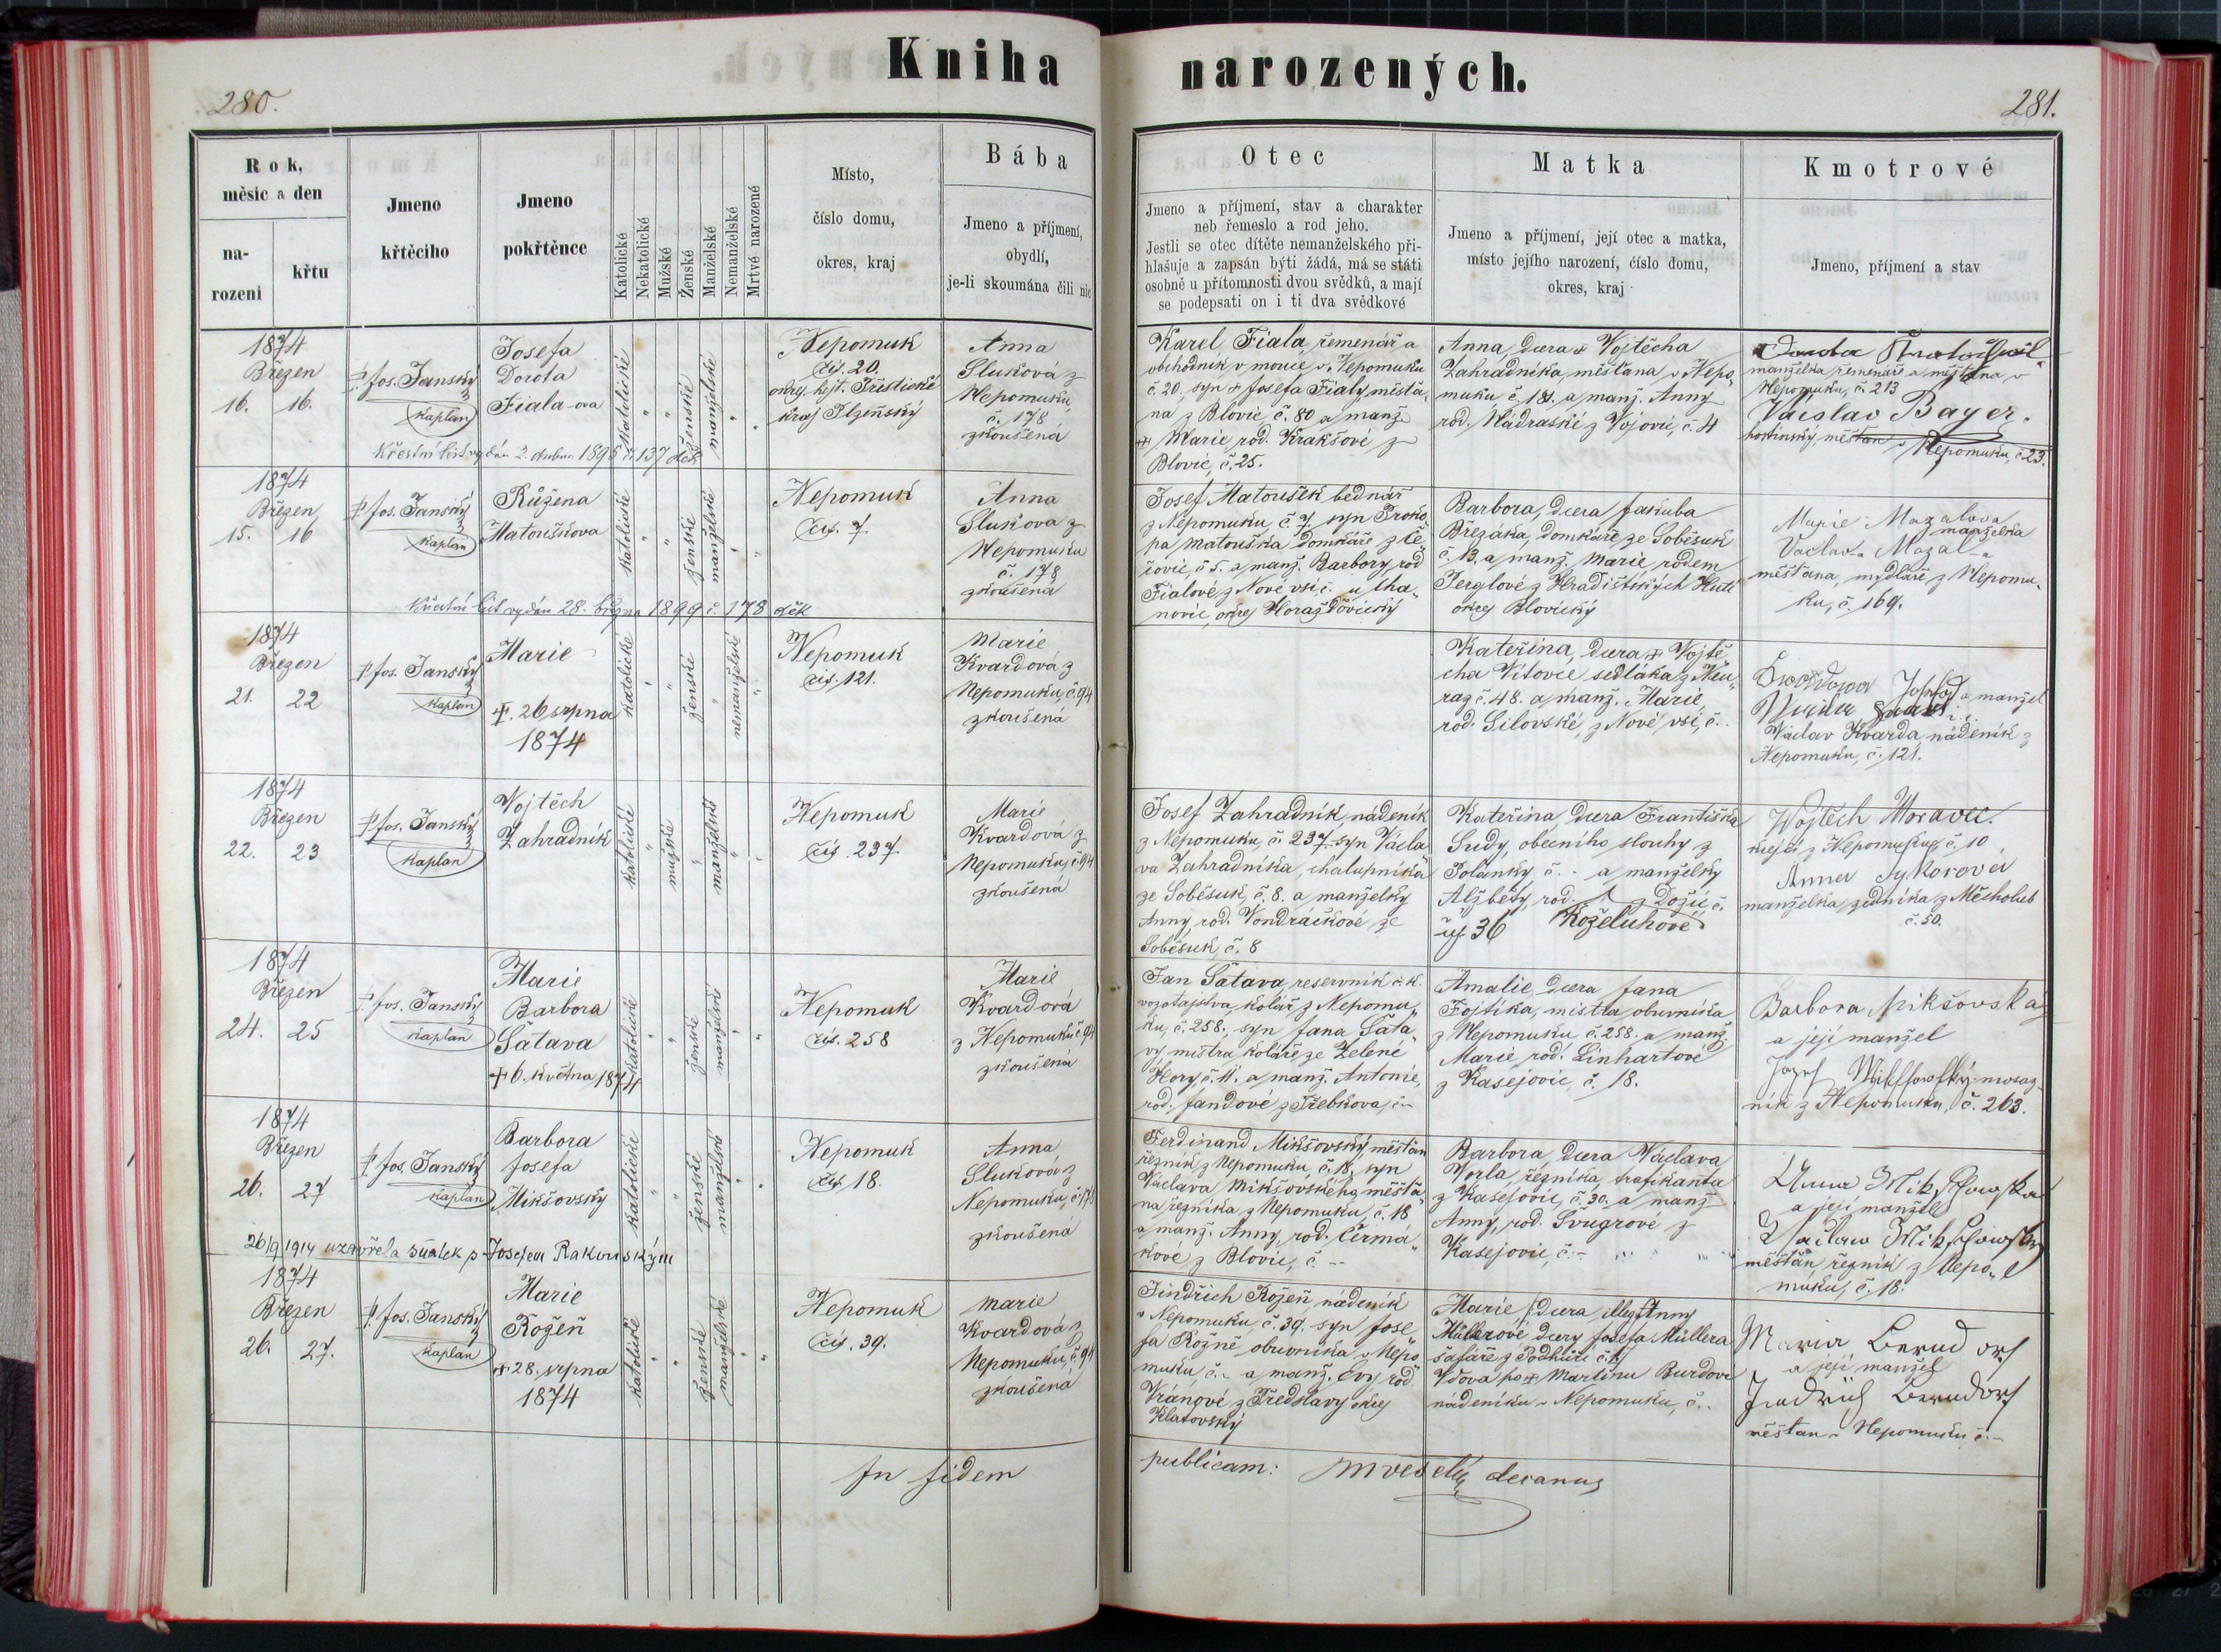 Kniha narozených.
280.
281.
Rok,
měsíc a den
na-
rozeni
křtu
Jmeno
křtěcího
Jmeno
pokřtěnce
Katolické
Nekatolické
Mužské
Ženské
Manželské
Nemanželské
Mrtvé narozené
Místo,
číslo domu,
okres, kraj
Bába
Jmeno a příjmení,
obydlí,
je-li skoumána čili nic
Otec
Jmeno a příjmení, stav a charakter
neb řemeslo a rod jeho.
Jestli se otec dítěte nemanželského při-
hlašuje a zapsán býti žádá, má se státi
osobně u přítomnosti dvou svědků, a mají
se podepsati on i ti dva svědkové
Matka
Jmeno a příjmení, její otec a matka,
místo jejího narození, číslo domu,
okres, kraj
Kmotrové
Jmeno, příjmení a stav
1874
Březen
16. 16.
P. Jos. Janský
kaplan
Josefa
Dorota
Fiala-ova
katolické
ženské
manželské
Nepomuk
čís. 20.
okrej. hejt. Přestické
kraj Plzeňský
Anna
Sluková z
Nepomuku,
č. 178
zkoušená
Křestní list vydán 2. dubna 1895 č. 137 děk
Karel Fiala, řemenář a
obchodník v mouce, v Nepomuku
č. 20, syn + Josefa Fialy měšťa-
na z Blovic č. 80 a manž.
+ Marie, rod. Krakšové z
Blovic, č. 25.
Anna, dcera + Vojtěcha
Zahradníka, měšťana v Nepo-
muku, č. 181. a manž. Anny
rod. Nádraské z Vojovic, č. 4
manželka řemenáře a měšťana v
Nepomuku, č. 213
Václav Bayer.
hostinský, měšťan v Nepomuku, č. 23.
1874
Březen
15. 16
P. Jos. Janský
kaplan
Růžena
Matouškova
katolické
ženské
manželské
Nepomuk
čís. 7.
Anna
Sluková z
Nepomuku
č. 178
zkoušená
Křestní list vydán 28. března 1899 č. 178 děk
Josef Matoušek bednář
z Nepomuku, č. 7, syn Proko-
pa Matouška domkáře z
č. 5. a manž. Barbory, rod
Fialové z Nové vsi č. u Cha-
novic, okrej Horažďovický
Barbora, dcera Jakuba
Březáka, domkáře ze Soběsuk
č. 13. a manž. Marie rodem
Perglové z Hradišťských Hutí
okrej Blovický
Marie Mazalova
manželka
Václava Mazala
měšťana, mydláře z Nepomu-
ku, č. 169.
1874
Březen
21. 22
P. Jos. Janský
kaplan
Marie
+. 26 srpna
1874
katolické
ženské
nemanželské
Nepomuk
čís. 121.
Marie
Kvardová z
Nepomuku, č. 94
zkoušená
Kateřina, dcera + Vojtě-
cha Vítovce sedláka z Neu-
rag č. 48. a manž. Marie,
rod. Silovské, z Nové vsi, č.
a manžel
Václav Kvarda, nádeník z
Nepomuku, č. 121.
1874
Březen
22. 23
P. Jos. Janský
kaplan
Vojtěch
Zahradník
katolické
mužské
manželské
Nepomuk
čís. 237.
Marie
Kvardová z
Nepomuku, č. 94
zkoušená
Josef Zahradník, nádeník
z Nepomuku, č. 237. syn Václa-
va Zahradníka, chalupníka
ze Soběsuk, č. 8. a manželky
Anny, rod. Vondráčkové ze
Soběsuk, č. 8
Kateřina, dcera Františka
Sudy, obecního slouhy z
Polánky č. - a manželky
Alžběty, rod. z Dožic č.
čís. 36 Koželuhové
Wojtěch Moravec.
krejčí z Nepomuku, č. 10
Anna Sykorová
manželka zedníka z Měcholub
č. 50.
1874
Březen
24. 25
P. Jos. Janský
kaplan
Marie
Barbora
Šatava
+ 6. května 1874
katolické
ženské
manželské
Nepomuk
čís. 258
Marie
Kvardová
z Nepomuku č. 94
zkoušená
Jan Šatava, reservník c. k.
vozatajstva, kolář z Nepomu-
ku, č. 258. syn Jana Šata-
vy, mistra koláře ze Zelené
Hory, č. 11. a manž. Antonie,
rod. Jandové z Třebkova, č.-
Amalie, dcera Jana
Fojtíka, mistra obuvníka
z Nepomuku č. 258. a manž.
Marie rod. Linhartové
z Kasejovic, č. 18.
Barbora Mikšovská
a její manžel
Jozef Mikschowský mosaz-
ník z Nepomuku, č. 263.
1874
Březen
26. 27
P. Jos. Janský
kaplan
Barbora
Josefa
Mikšovský
katolické
ženské
manželské
Nepomuk
čís. 18.
Anna
Sluková z
Nepomuku, č. 178
zkoušená
26/9 1914 uzavřela sňatek s Josefem Rakouským
Ferdinand Mikšovský, měšťan
řezník z Nepomuku, č. 18, syn
Václava Mikšovského, měšťa-
na, řezníka z Nepomuku, č. 18
a manž. Anny, rod. Čermá-
kové z Blovic, č. --
Barbora, dcera Václava
Vorla, řezníka, trafikanta
z Kasejovic, č. 30. a manž
Anny, rod. Švugrové z
Kasejovic, č. -
Anna Mikschowska
a její manžel
Waclaw Mikschowsky
měšťan řezník z Nepo-
muku, č. 18.
1874
Březen
26. 27.
P. Jos. Janský
kaplan
Marie
Rožeň
+ 28. srpna
1874
katolické
ženské
manželské
Nepomuk
čís. 39.
Marie
Kvardová z
Nepomuku, č. 94
zkoušená
Jindřich Rožeň, nádeník
v Nepomuku, č. 39. syn Jose-
fa Rožně obuvníka v Nepo-
muku, č. - a manž. Evy rod.
Vránové z Předslavy okrej
Klatovský
Marie, dcera illeg. Anny
Müllerové dcery Josefa Müllera
šafáře z Podhůří č. 1,
vdova po + Martinu Burdovi
nádeníku v Nepomuku, č. -
Maria Berndorf
a její manžel
Jindřich Berndorf
měšťan v Nepomuku č. -
In fidem publicam: MVeselý decanus